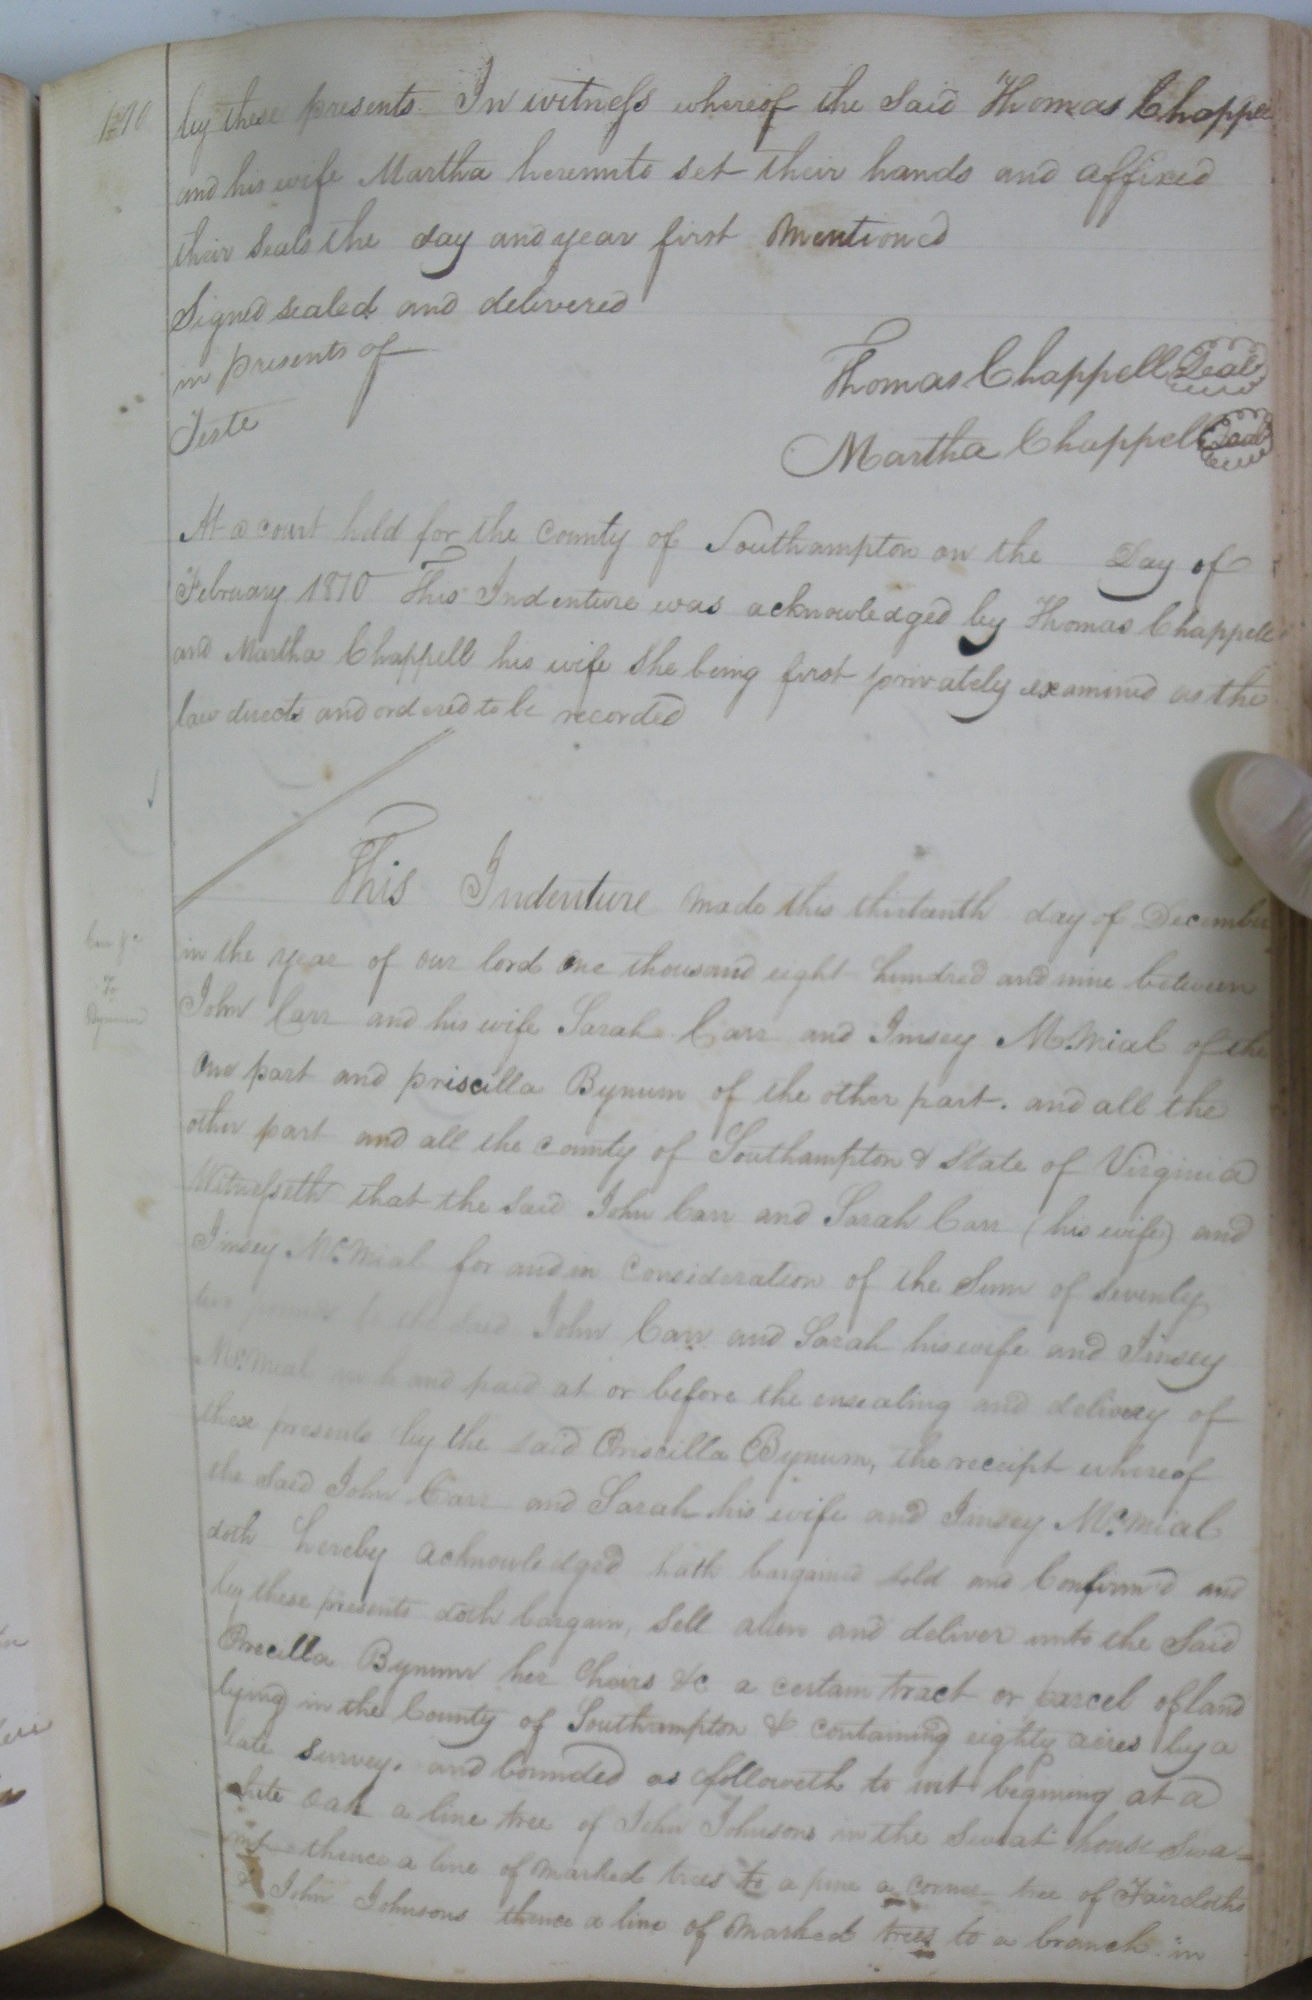 by these presents. In witness whereof the said Thomas Chappell
and his wife Martha hereunto set their hands and affixed
their seals the day and year first Mentioned
Signed sealed and delivered
in presents of
Thomas Chappell Seal
Teste
Martha Chappell Seal
At a court held for the County of Southampton on the Day of
February 1810 This Indenture was acknowledged by Thomas Chappell
and Martha Chappell his wife She being first privately examined as the
law directs and ordered to be recorded
This Indenture made this thirteenth day of December
in the year of our lord One thousand eight hundred and nine between
Carr &c
To
Bynum
John Carr and his wife Sarah Carr and Jinsey Mc.Mial of the
One part and priscilla Bynum of the other part. and all the
other part and all the county of Southampton & State of Virginia
Witnesseth that the said John Carr and Sarah Carr (his wife) and
Jinsey Mc.Mial for and in Consideration of the Sum of seventy
to the said John Carr and Sarah his wife and Jinsey
Mc.Mial in hand paid at or before the ensealing and delivery of
these presents by the said Priscilla Bynum, the receipt whereof
the said John Carr and Sarah his wife and Jinsey Mc.Mial
doth hereby acknowledged hath bargained sold and Confirm'd and
by these presents doth bargain, Sell alien and deliver unto the Said
Precilla Bynum her heirs &c a certain tract or parcel of land
lying in the County of Southampton & containing eighty acres by a
late survey. and bounded as followeth to wit begining at a
white Oak a line tree of John Johnsons in the Sweat house Swa-
mp thence a line of marked trees to a pine a corner tree of Faircloths
& John Johnsons thence a line of marked trees to a branch in